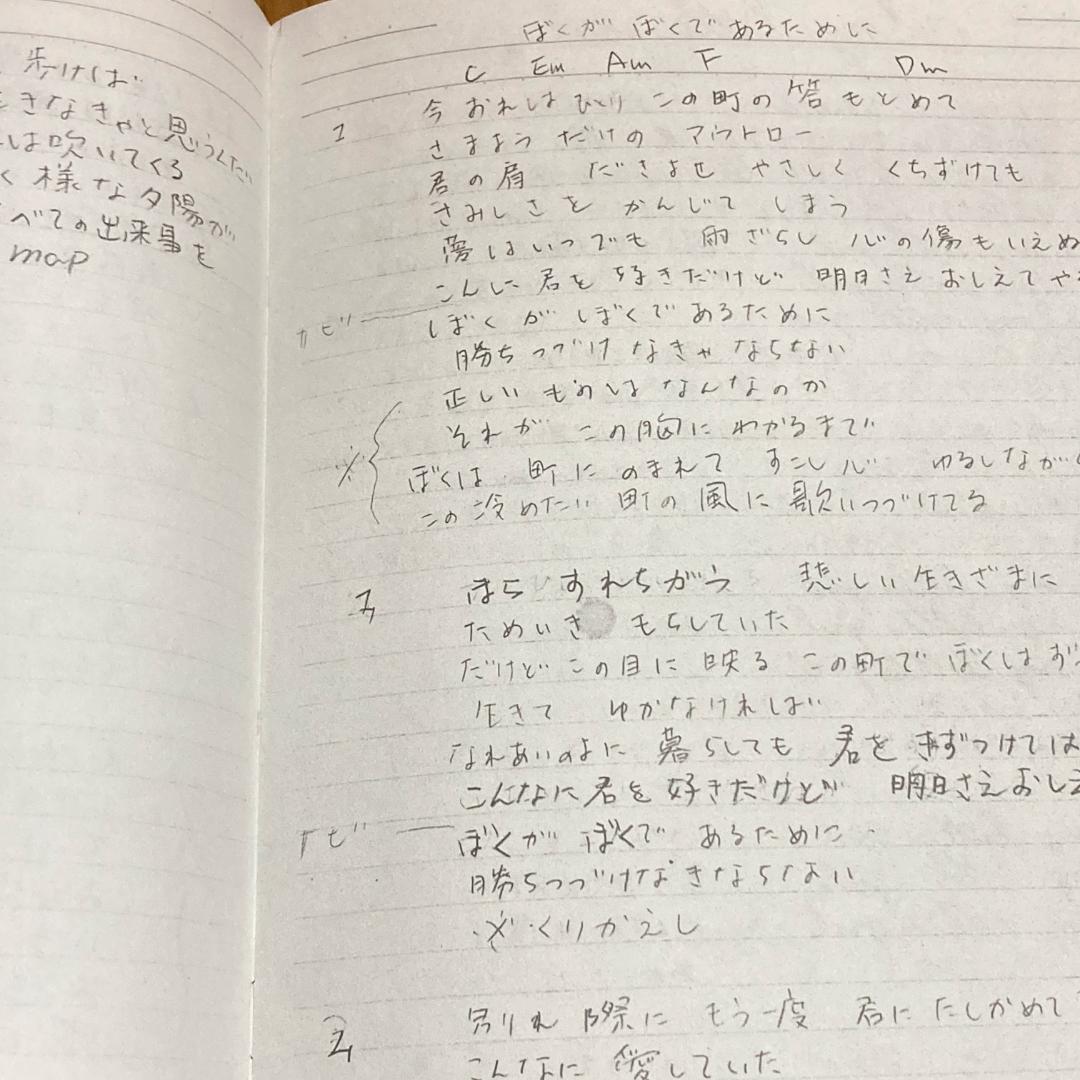 歩けば
きなきゃと思うくだ
は吹いてくる
く様な夕陽が
べての出来事を
map
ぼくがぼくであるために
C Em Am F Dm
1 今おれはひとり この町の答もとめて
さまようだけの アウトロー
君の肩 だきよせ やさしく くちずけても
さみしさを かんじて しまう
夢はいつでも 雨ざらし 心の傷もいえぬ
こんに君を好きだけど 明日さえおしえてや
サビ ぼくがぼくであるために
勝ちつづけなきゃならない
※ 正しいものはなんなのか
それが この胸にわかるまで
ぼくは 町にのまれて すこし心 ゆるしながら
この冷めたい町の風に歌いつづけてる
2 ほら すれちがう 悲しい生きざまに
ためいき もらしていた
だけど この目に映る この町で ぼくはず
生きて ゆかなければ
なれあいのよに 暮らしても 君を きずつけては
こんなに君を好きだけど 明日さえおしえ
サビ ぼくがぼくで あるために
勝ちつづけなきならない
※ くりかえし
別れ際に もう一度 君に たしかめて
こんなに 愛していた